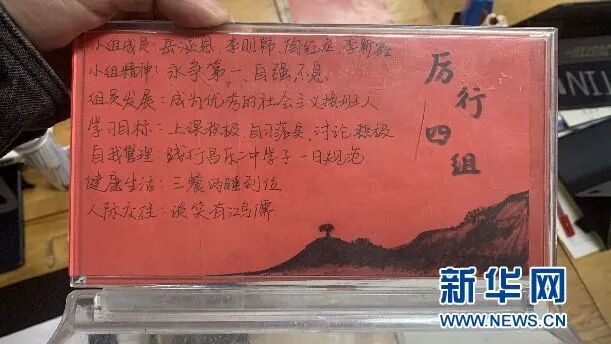 小组成员：
小组精神：永争第一、自强不息
组员发展：成为优秀的社会主义接班人
学习目标：上课积极，自习落实，讨论积极
自我管理：践行昌乐二中学子一日规范
健康生活：三餐两睡到位
人际交往：谈笑有鸿儒
厉行四组
新华网
WWW.NEWS.CN